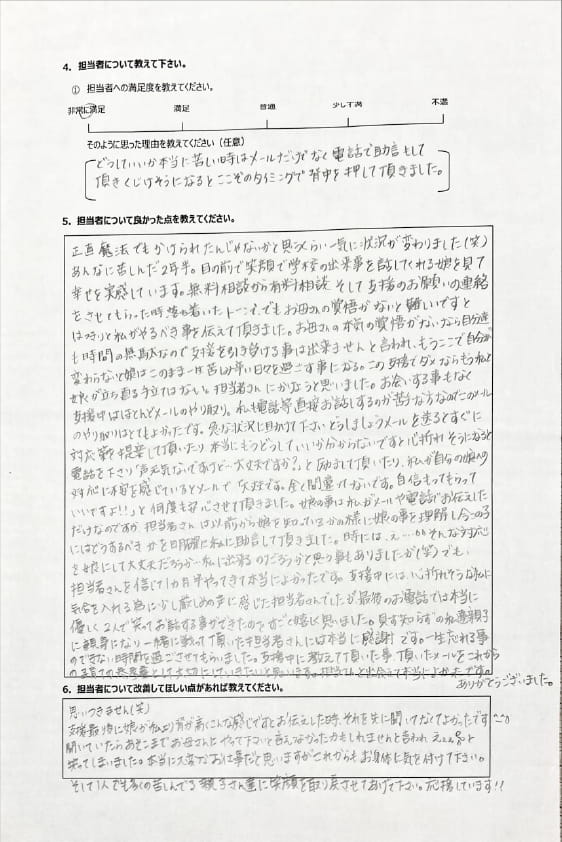 4. 担当者について教えて下さい。
① 担当者への満足度を教えてください。
非常に満足 満足 普通 少し不満 不満
そのように思った理由を教えてください（任意）
どうしていいか本当に苦しい時はメールだけでなく電話で助言もして
頂きくじけそうになるとここぞのタイミングで背中を押して頂きました。
5. 担当者について良かった点を教えてください。
正直魔法でもかけられたんじゃないかと思うくらい一気に状況が変わりました(笑)
あんなに苦しんだ2年半。目の前で笑顔で学校の出来事を話してくれる娘を見て
幸せを実感しています。無料相談から有料相談 そして支援のお願いの連絡
をさせてもらった時 落ち着いたトーンで、でもお母さんの覚悟がないと難しいですと
はっきりと私がやるべき事を伝えて頂きました。お母さんの本気の覚悟がないなら自分達
も時間の無駄なので支援を引き受ける事は出来ませんと言われ、もうここで自分が
変わらないと娘はこのまま一生苦しい辛い日々を過ごす事になる。この支援でダメならもう私と
娘が立ち直る手立てはない。担当者さんにかけようと思いました。お会いする事もなく
支援中はほとんどメールのやり取り。私電話等直接お話しするのが苦手な方なのでこのメール
のやり取りはとてもよかったです。急な状況に助けて下さいどうしましょうメールを送るとすぐに
対応策を提案して頂いたり 本当にもうどうしていいか分からないですと心折れそうになると
電話を下さり「声元気ないですけど…大丈夫ですか?」と励まして頂いたり、私が自分の娘への
対応に不安を感じているとメールで「大丈夫です。全く間違ってないです。自信もってもらって
いいですよ!!」と何度も安心させて頂きました。娘の事は私がメールや電話でお伝えした
だけなのですが 担当者さんは以前から娘を知っているかの様に娘の事を理解し今この子
にはどうするべきかを明確に私に助言して頂きました。時には、え…そんな対応
を娘にして大丈夫だろうか…私に出来るのだろうかと思う事もありましたが(笑)でも
担当者さんを信じて1カ月半やってきて本当によかったです。支援中には、心折れそうな私に
気合を入れる為に少し厳しめの声に感じた担当者さんでしたが最後のお電話では本当に
優しく2人で笑ってお話する事ができたので、すごく嬉しく思いました。見ず知らずの私達親子
に親身になり一緒に戦って頂いた担当者さんには本当に感謝です。一生忘れる事
のできない時間を過ごさせてもらいました。支援中に教えて頂いた事、頂いたメールをこれから
大切にしていきたいと思います。担当さんと出会えて本当によかったです。
ありがとうございました。
6. 担当者について改善してほしい点があれば教えてください。
思いつきません(笑)
支援最後に娘が私より背が高くこんな感じですとお伝えした時、それを先に聞いてなくてよかったです
聞いていたらあそこまでお母さんに やって下さいと言えなかったかもしれませんと言われ えぇぇと
笑ってしまいました。本当に大変なお仕事だと思いますがこれからもお身体に気を付けて下さい。
そして1人でも多くの苦しんでる親子さん達に笑顔を取り戻させてあげて下さい。応援しています!!